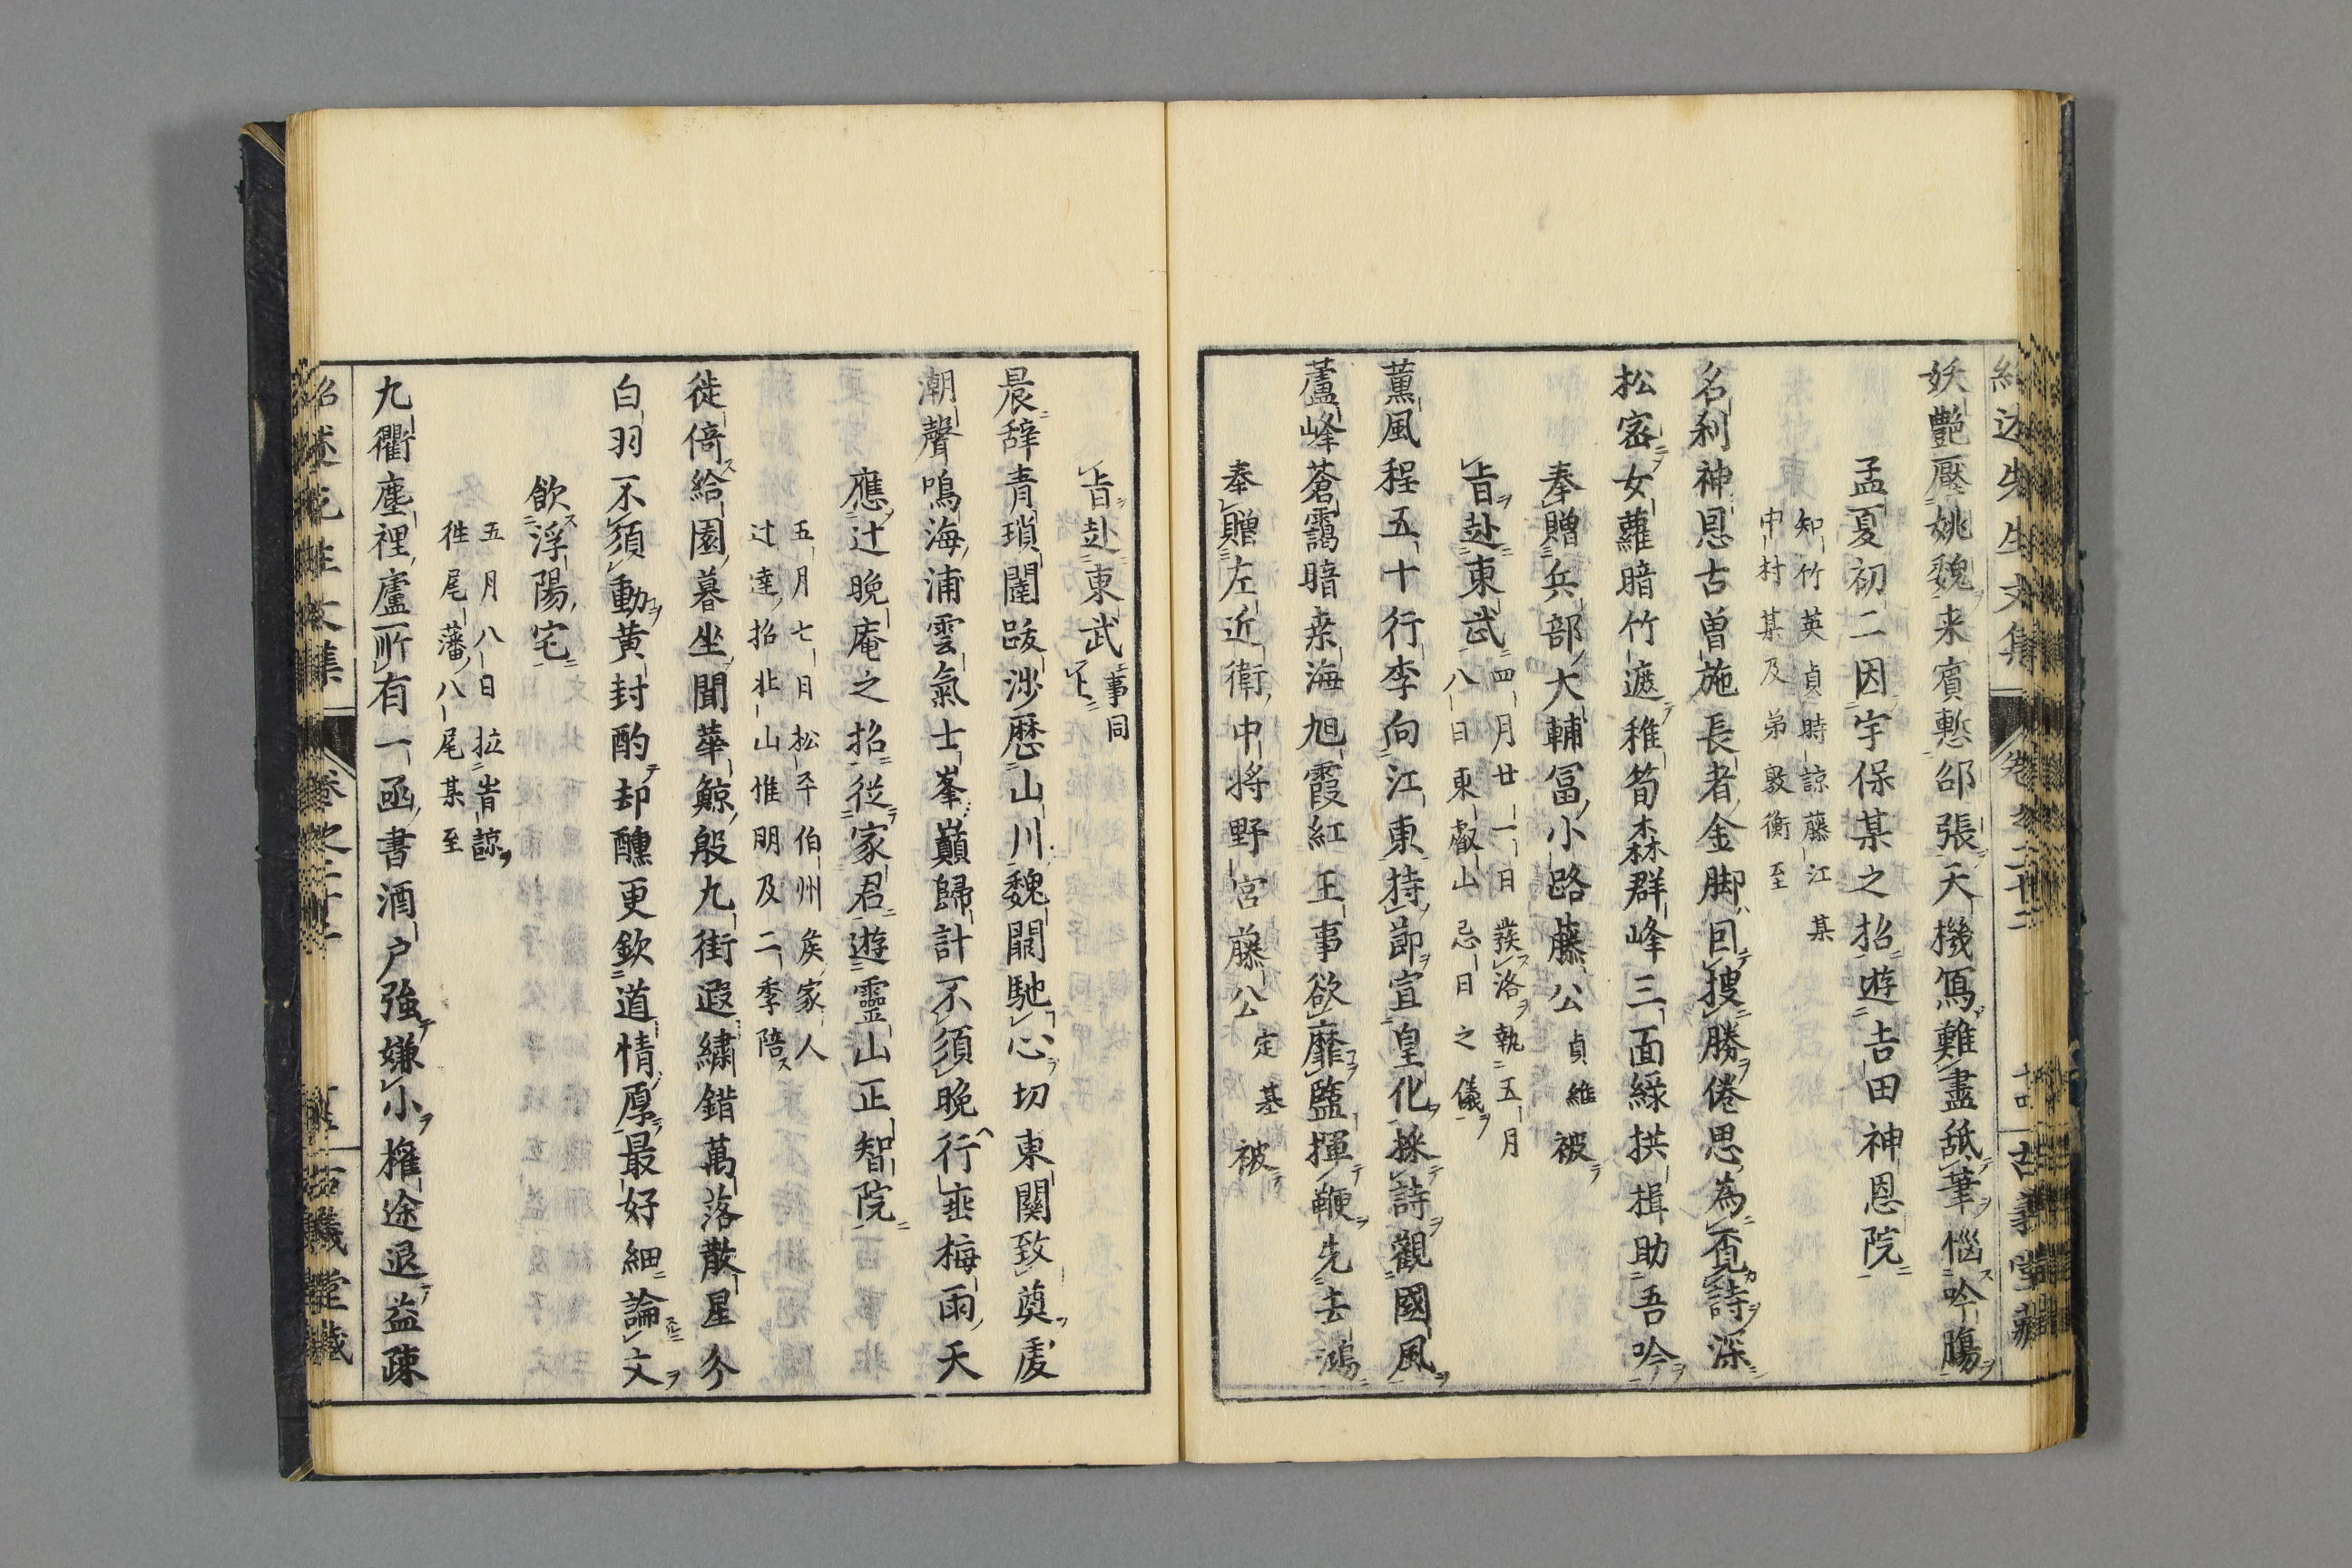 紹述先生文集 卷之二十二 十四 古義堂藏
妖艶壓姚魏来賓慙邵張天機寫難盡舐筆惱吟膓
孟夏初二因宇保某之招遊吉田神恩院
知竹英貞時諒藤江某
中村某及弟敦衡至
名刹神恩古曽施長者金脚回捜勝倦思為覔詩深
松密女蘿暗竹遮稚筍森群峰三面緑拱揖助吾吟
奉贈兵部大輔冨小路藤公貞維被
旨赴東武
四月廿一日發洛執五月
八日東叡山忌日之儀
薫風程五十行李向江東持節宣皇化採詩觀國風
蘆峰蒼靄暗桒海旭霞紅王事欲靡盬揮鞭先去鴻
奉贈左近衛中将野宮藤公定基被
旨赴東武
事同
下
晨辞青瑣闥跋渉歴山川魏闕馳心切東關致奠虔
潮聲鳴海浦雲氣士峯巓歸計不須晩行垂梅雨天
應辻晩庵之招従家君遊靈山正智院
五月七日松平伯州矦家人
辻達招北山惟明及二季陪
徙倚給園暮坐聞華鯨殷九街遐繍錯萬落散星分
白羽不須動黄封酌却醺更欽道情厚最好細論文
飲浮陽宅
五月八日拉岩諒
徃尾藩八尾某至
九衢塵裡廬所有一函書酒户強嫌小權途退益疎
紹述先生文集 卷之二十二 古義堂藏